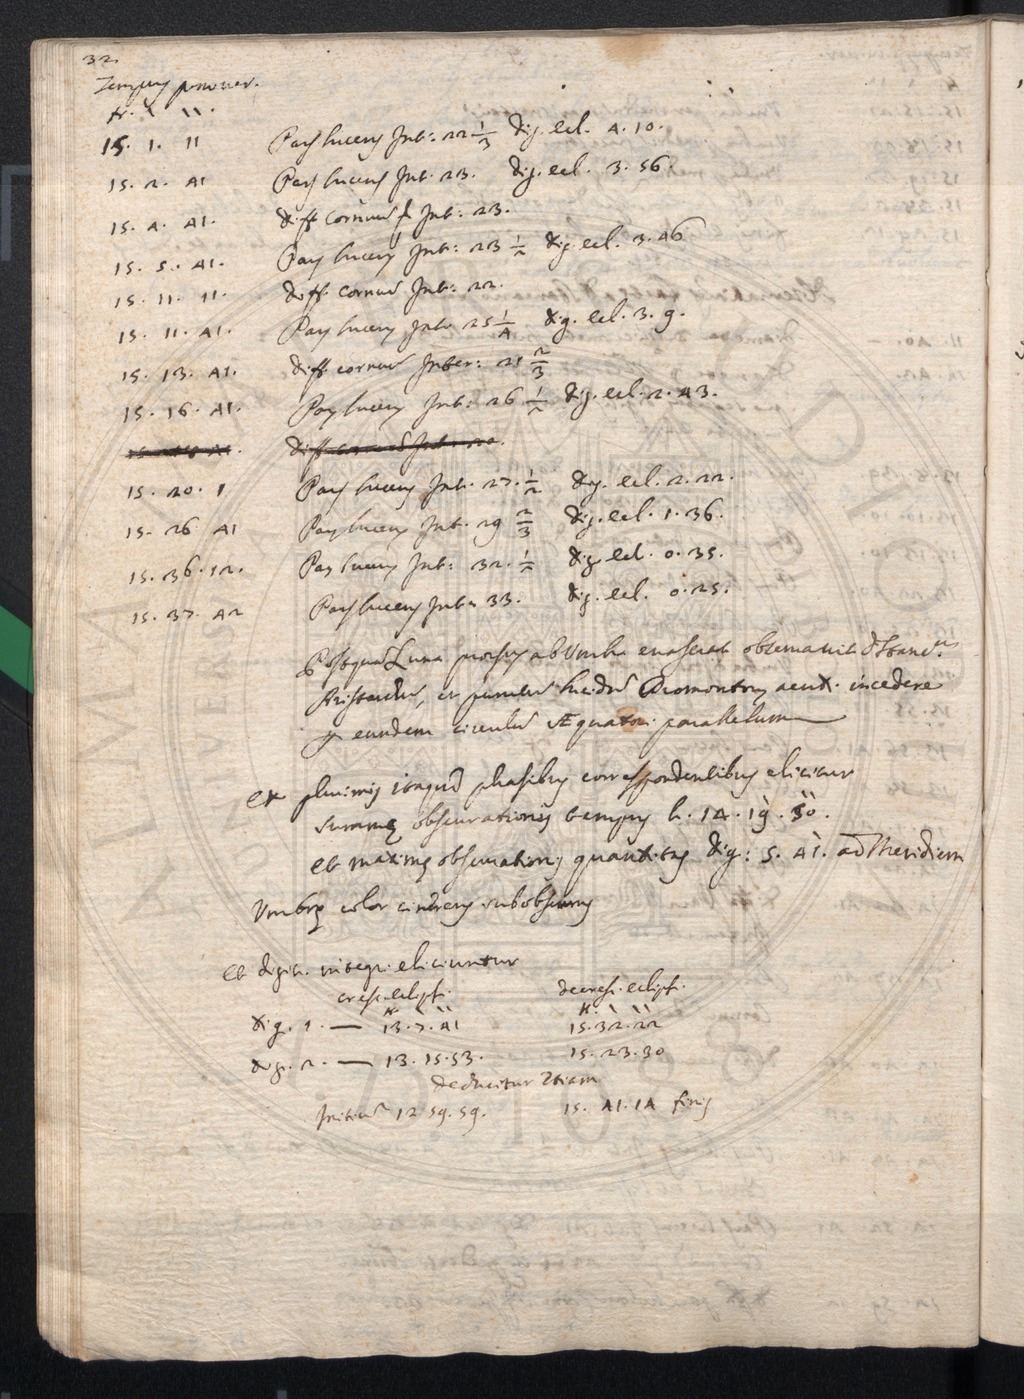 32.
Tempus pomer.
h. ` ``.
15. 1. 11 Pars lucens Int: 22 1/3 dig. ecl. 4. 10.
15. 2. 41 Pars lucens Int. 23. dig. ecl. 3. 56.
15. 4. 41. diff. cornuū Int: 23.
15. 5. 41. Pars lucens Int: 23 1/2 dig. ecl. 3. 46
15. 11. 11. diff. cornuū Int: 22.
15. 11. 41. Pars lucens Int: 25 1/4 dig. ecl. 3. 9.
15. 13. 41. diff. cornuū Inter: 21 2/3
15. 16. 41. Pars lucens Int: 26 1/2 dig. ecl. 2. 43.
diff. cornuū Int: 20.
15. 20. 1 Pars lucens Int. 27. 1/2 dig. ecl. 2. 22.
15. 26 41 Pars lucens Int. 29 2/3 dig. ecl. 1. 36.
15. 36. 12. Pars lucens Int: 32. 1/2 dig. ecl. 0. 35.
15. 37. 42 Pars lucens Int: 33. dig. ecl. 0. 25.
Postquā Luna prorsus ab Umbra evaserat observavit
Aristarchū, et lucidū Promontorij acuti incedere
p eundem circulū Æquatori parallelum
Ex plurimis itaque phasibus correspondentibus elicitur
summę obscurationis tempus h. 14. 19. 30.
et maximę obscurationis quantitas dig: 5. 41. ad Meridiem
Umbrę color cinereus subobscurus
Et digit. integri eliciuntur
cresc. eclips. decresc. eclips.
h. ` `` h. ` ``
dig. 1. — 13. 7. 41 15. 32. 22
dig. 2. — 13. 15. 53. 15. 23. 30
deducitur etiam
Initiū 12 59. 59. 15. 41. 14 finis